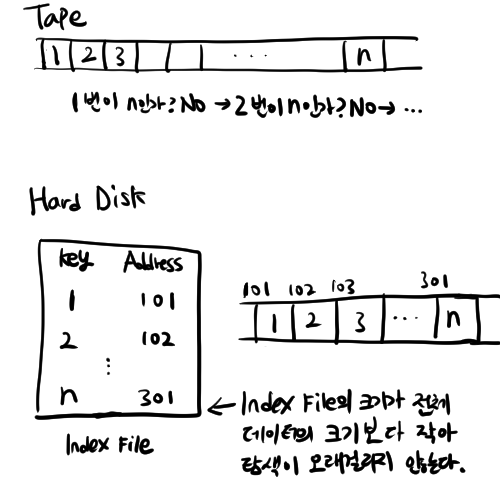 Tape
1 2 3 ... n
1번이 n인가? No → 2번이 n인가? No → ...
Hard Disk
key Address
1 101
2 102
⋮
n 301
Index File
101 102 103 301
1 2 3 ... n
← Index File의 크기가 전체
데이터의 크기보다 작아
탐색이 오래걸리지 않는다.